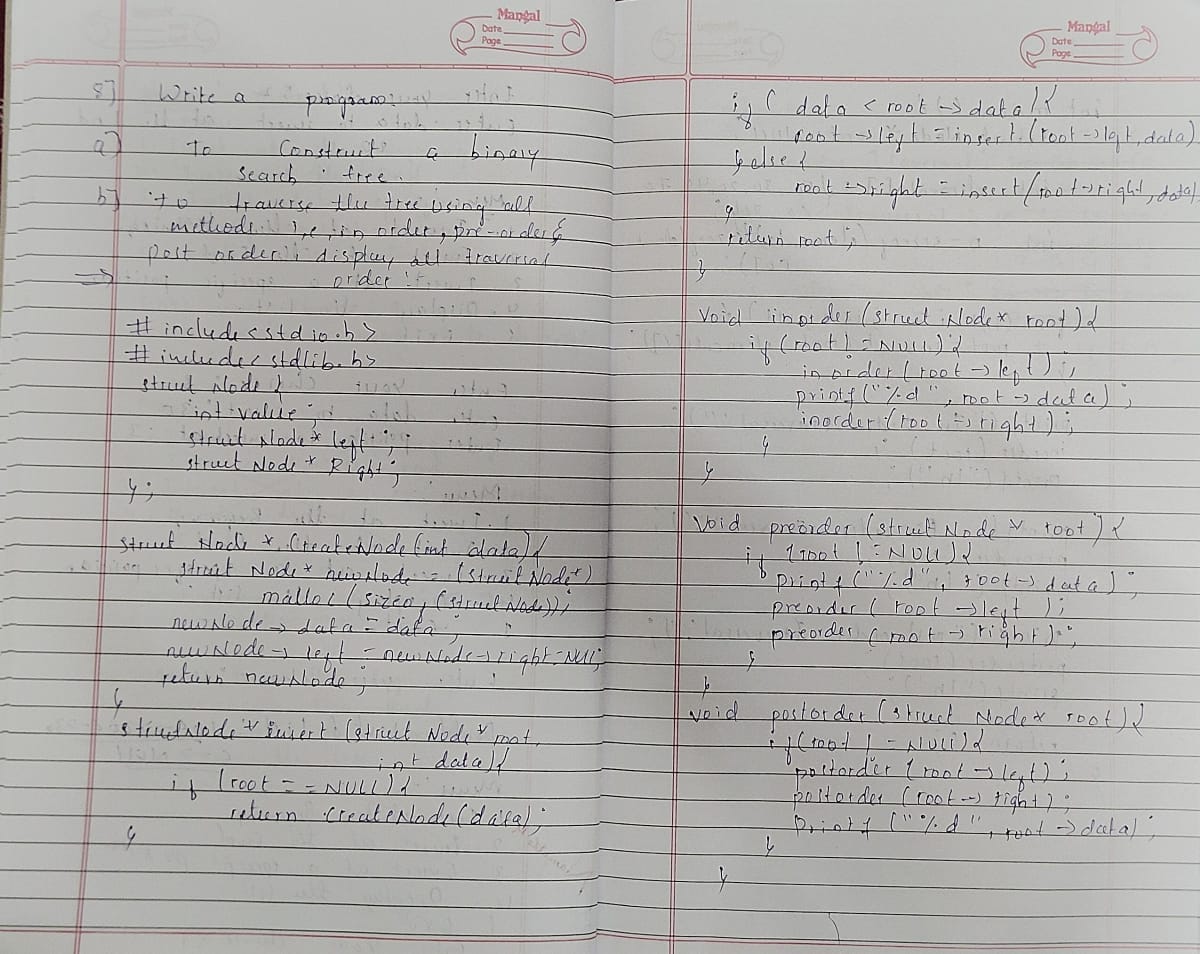 Mangal
Date
Page
8] Write a program:
a] To Construct a binary
search tree.
b] to traverse the tree using all
methods i.e, in order, pre-order &
post order, display all traversal
order :
=>
# include <stdio.h>
# include < stdlib.h>
struct Node {
int value ;
struct Node * left ;
struct Node * Right ;
};
struct Node * CreateNode (int data) {
struct Node * newNode = (struct Node*)
malloc (sizeof (struct Node));
newNode -> data = data ;
newNode -> left = newNode -> right = NULL;
return newNode ;
}
struct Node * insert (struct Node * root,
int data) {
if (root == NULL) {
return createNode (data) ;
}
Mangal
Date
Page
if ( data < root -> data ) {
root -> left = insert (root -> left, data)
} else {
root -> right = insert (root -> right, data)
}
return root ;
}
Void inorder (struct Node * root) {
if (root != NULL) {
inorder (root -> left) ;
printf ("%d", root -> data) ;
inorder (root -> right) ;
}
}
Void preorder (struct Node * root) {
if (root != NULL) {
printf ("%d", root -> data) ;
preorder ( root -> left ) ;
preorder ( root -> right ) ;
}
}
void postorder (struct Node * root) {
if (root != NULL) {
postorder (root -> left) ;
postorder (root -> right) ;
Printf ("%d", root -> data) ;
}
}